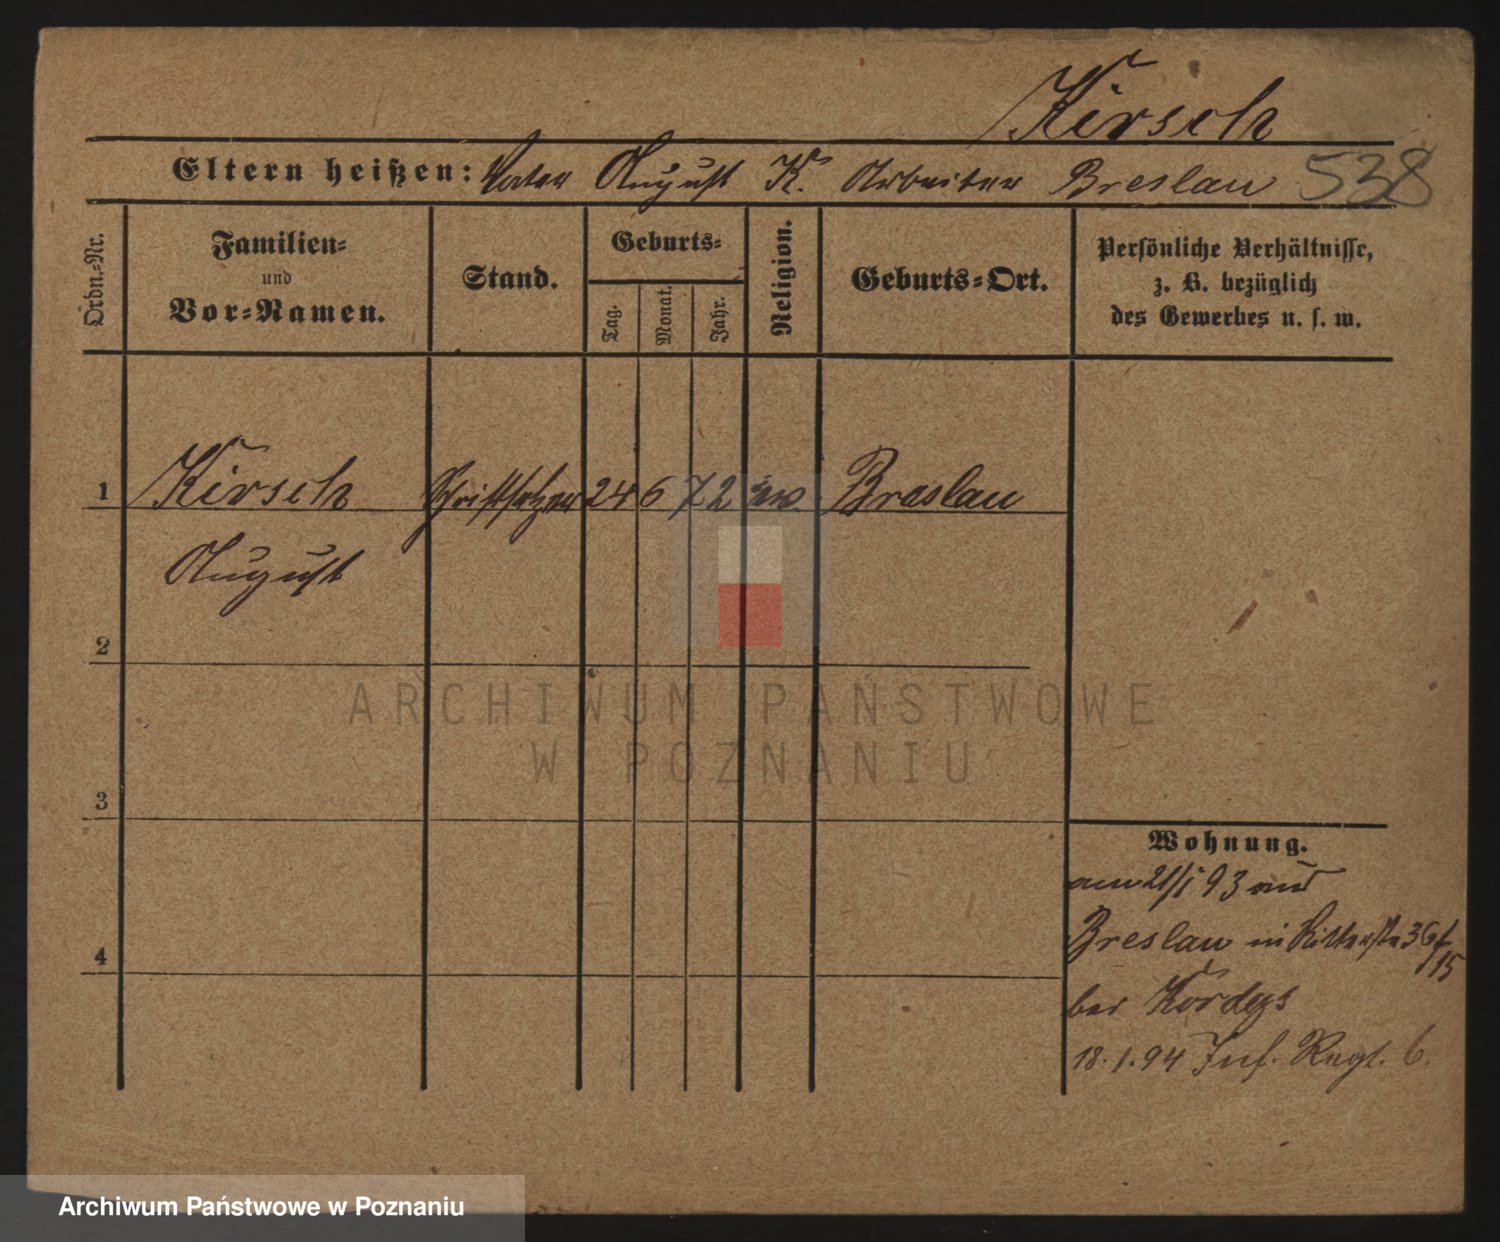 Kirsch
Eltern heißen: Vater August K. Arbeiter Breslau 538
Ordn.-Nr.
Familien-
und
Vor-Namen.
Stand.
Geburts-
Tag.
Monat.
Jahr.
Religion.
Geburts-Ort.
Persönliche Verhältnisse,
z. B. bezüglich
des Gewerbes u. s. w.
1 Kirsch Schriftsetzer 24 6 72 ew. Breslau
August
2
3
4
Wohnung.
am 21/1 93 aus
Breslau in Ritterstr 36/
15
bei Kordys
18.1.94 Inf. Regt. 6.
ARCHIWUM PAŃSTWOWE
W POZNANIU
Archiwum Państwowe w Poznaniu